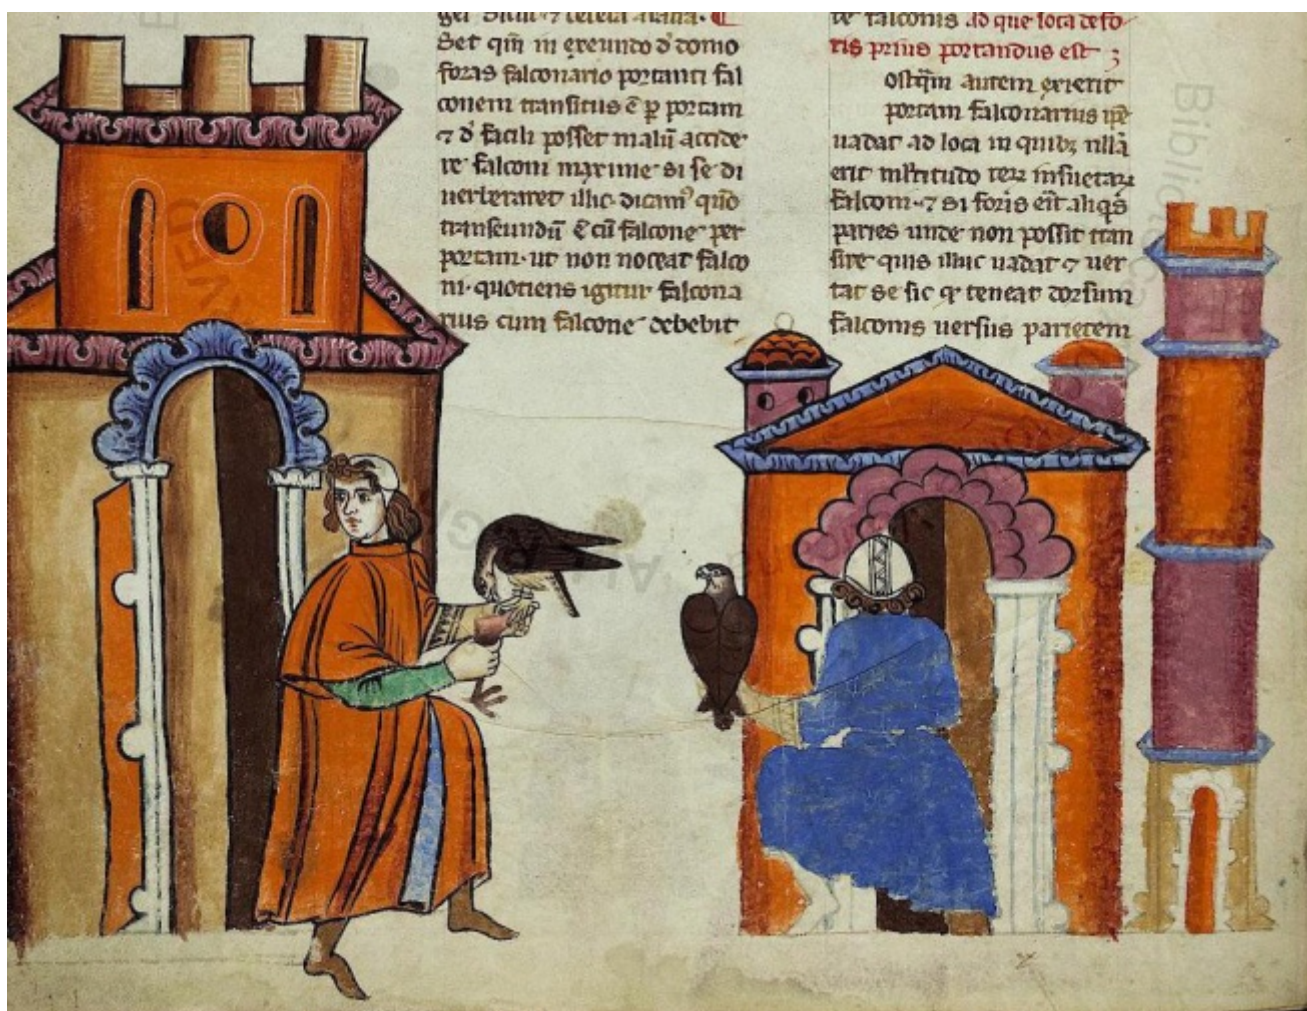 Set qm̄ in exeundo d' domo
foras falconario portanti fal
conem transitus ē ꝑ portam
⁊ d' facili posset malū accide
re falconi maxime si se di
uerberaret illic. dicamꝰ quō
transeundū ē cū falcone per
portam. ut non noceat falco
ni. quotiens igitur falcona
rius cum falcone debebit
te falconis ad que loca defo
ris prius portandus est
ostq̄m autem exierit
portam falconarius ip̄e
uadat ad loca in quibꝫ nllā
erit mltitudo reꝝ insuetaꝝ
falconi. ⁊ si foris erit aliqͥs
paries unde non possit tran
sire quis illuc uadat ⁊ uer
tat se sic ꝙ teneat dorsum
falconis uersus parietem